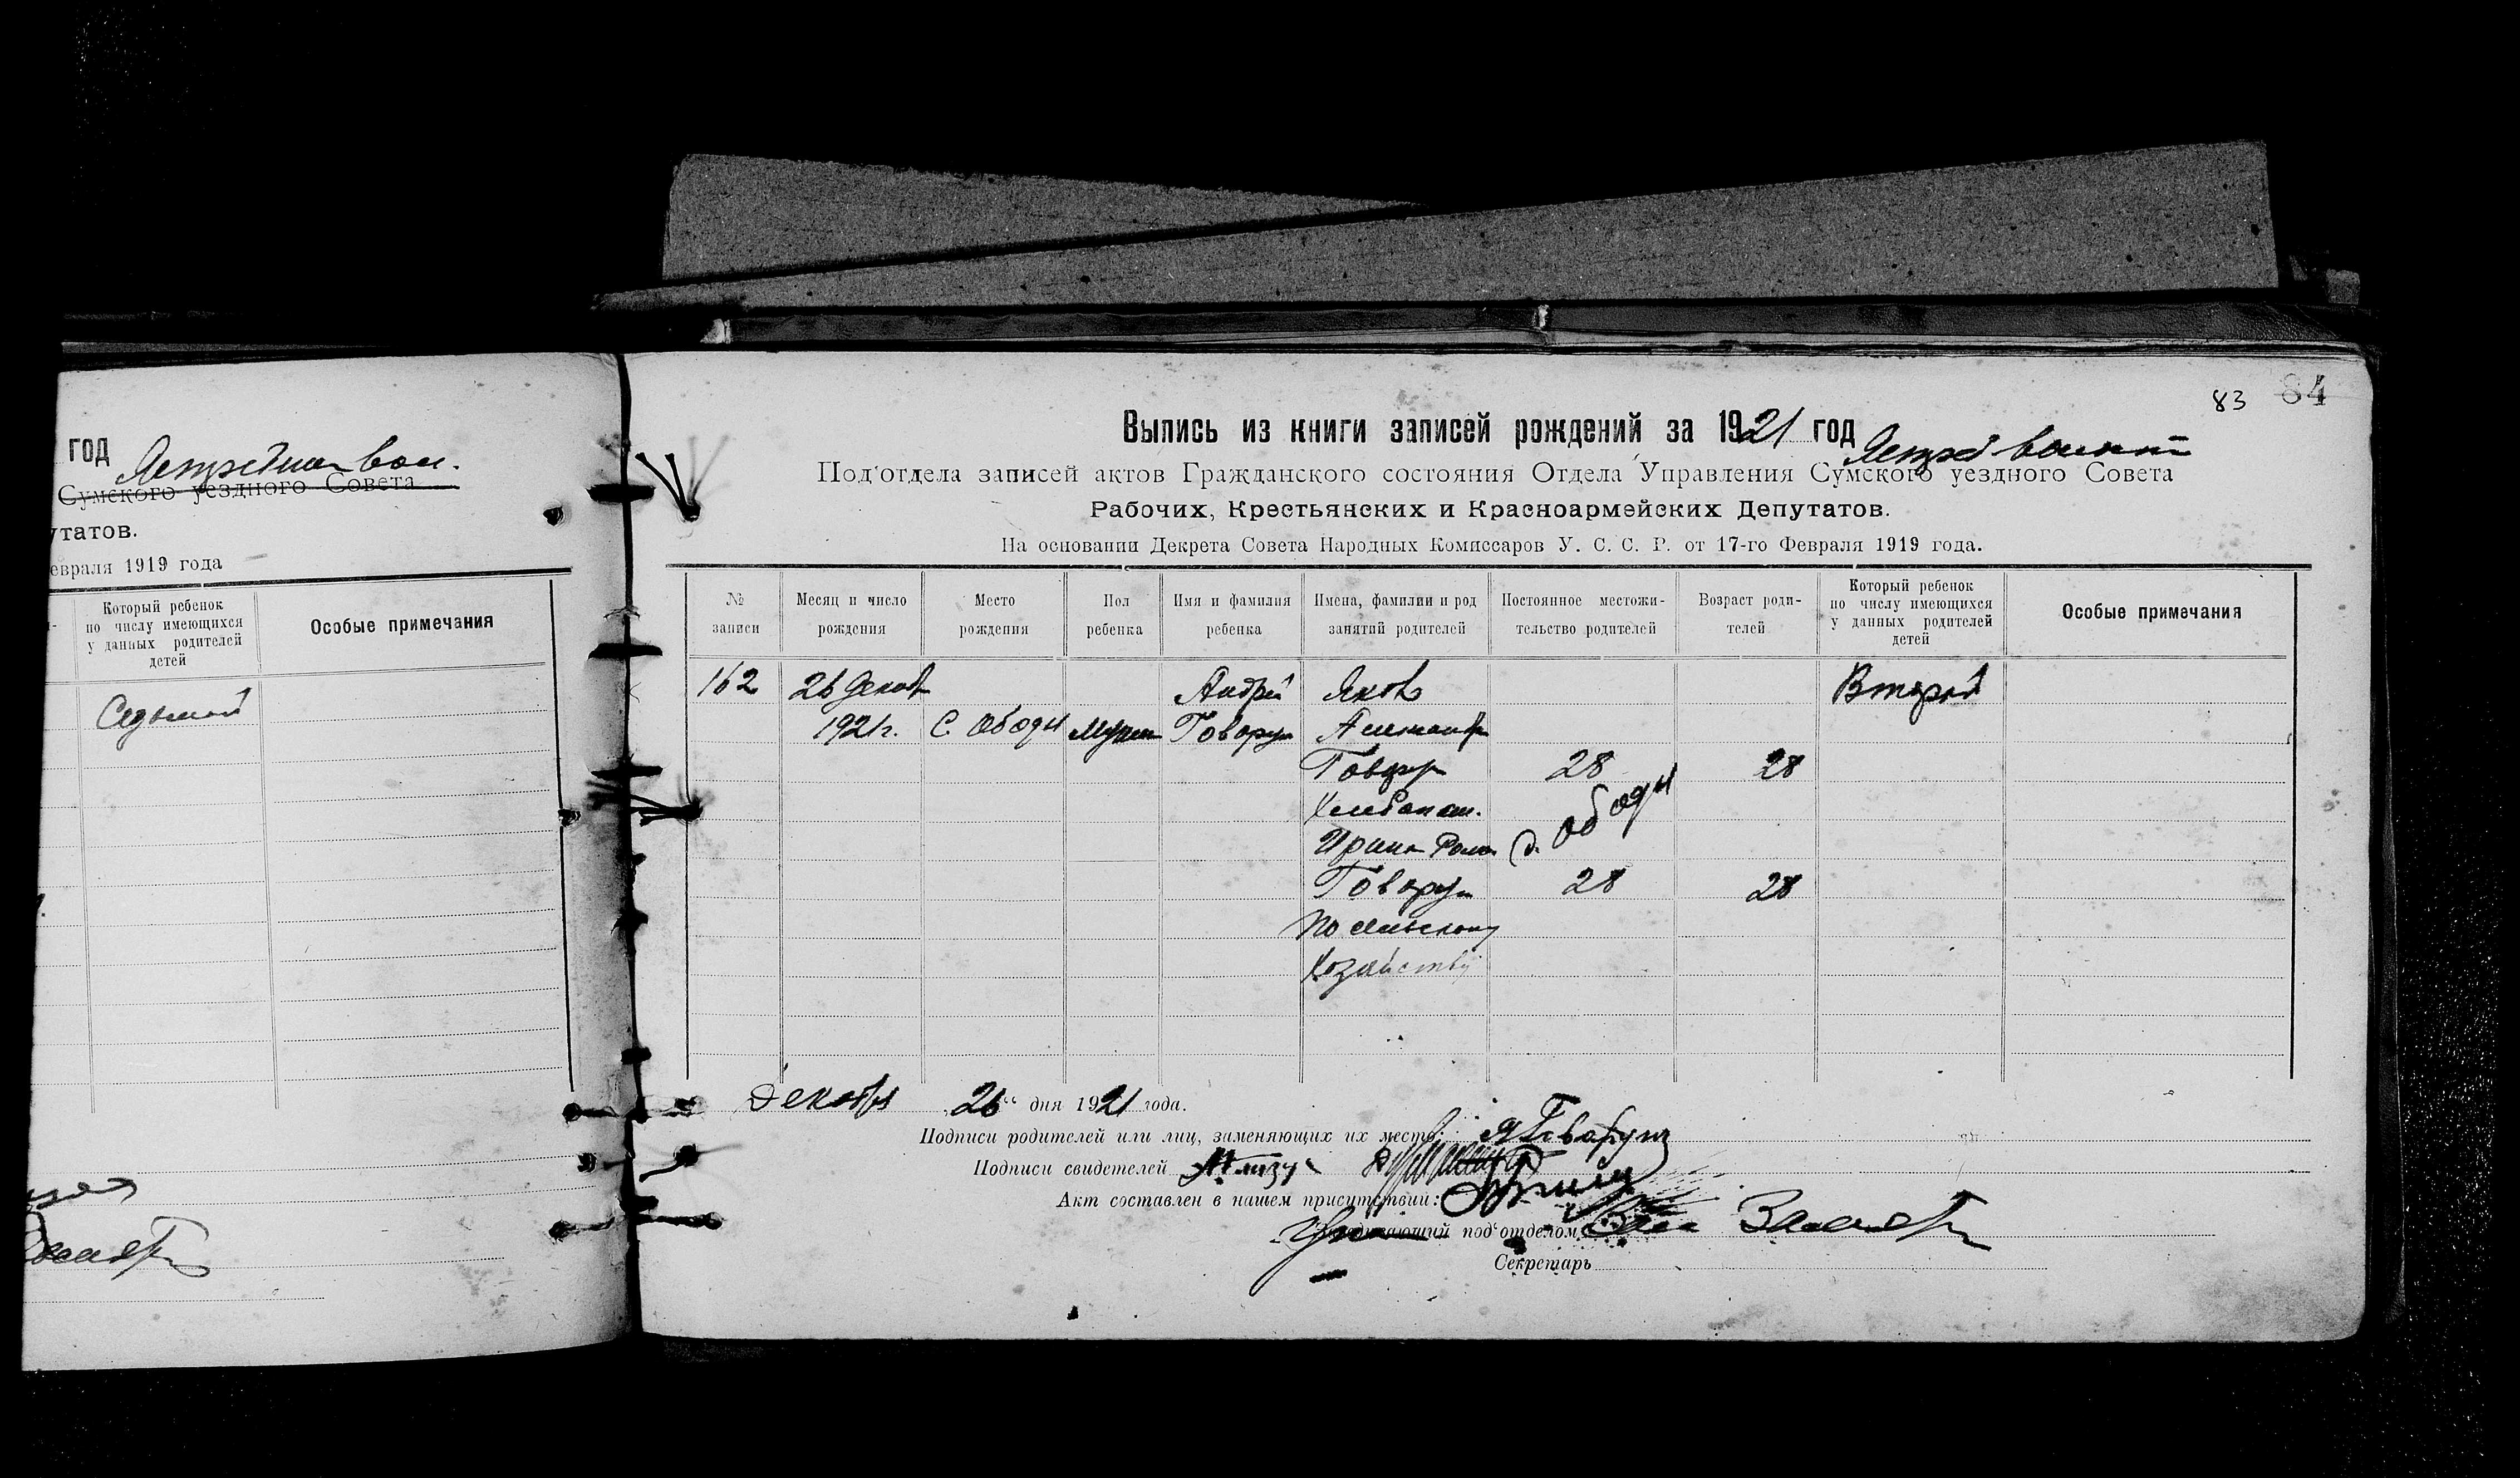 год
Сумского уездного Совета
утатов.
евраля 1919 года
Который ребенок
по числу имеющихся
у данных родителей
детей
Особые примечания
Седьмой
83 84
Выпись из книги записей рождений за 1921 год
Под'отдела записей актов Гражданского состояния Отдела Управления Сумского уездного Совета
Рабочих, Крестьянских и Красноармейских Депутатов.
На основании Декрета Совета Народных Комиссаров У. С. С. Р. от 17-го Февраля 1919 года.
№
записи
Месяц и число
рождения
Место
рождения
Пол
ребенка
Имя и фамилия
ребенка
Имена, фамилии и род
занятий родителей
Постоянное местожи-
тельство родителей
Возраст роди-
телей
Который ребенок
по числу имеющихся
у данных родителей
детей
Особые примечания
162 26 Декаб Андрей Яков Второй
1921г. С. Ободы Мужск Говорун
Говорун 28 28
Хлебопаш.
Ирина Ром д. Ободы
Говорун 28 28
По сельскому
Хозяйству
Декабря „26“ дня 1921 года.
Подписи родителей или лиц, заменяющих их место: Я Говорун
Подписи свидетелей
Акт составлен в нашем присутствии:
под'отделом
Секретарь